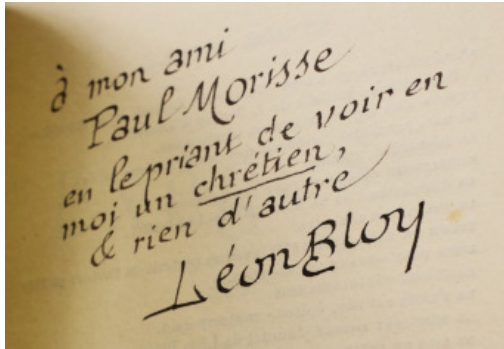 à mon ami
Paul Morisse
en le priant de voir en
moi un chrétien,
& rien d'autre
Léon Bloy